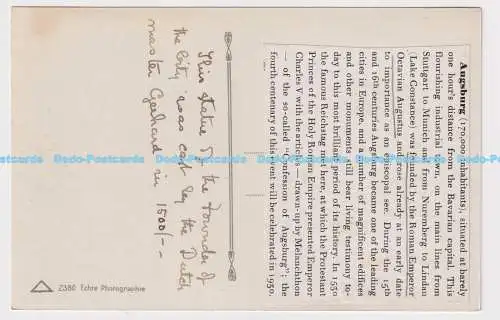 Augsburg (170,000 inhabitants), situated at barely
one hour's distance from the Bavarian capital. This
flourishing industrial town, on the main lines from
Stuttgart to Munich and from Nuremberg to Lindau
(Lake Constance) was founded by the Roman Emperor
Octavian Augustus and rose already at an early date
to importance as an episcopal see. During the 15th
and 16th centuries Augsburg became one of the leading
cities in Europe, and a number of magnificent edifices
and other monuments still bear living testimony to-
day to this most brilliant period of its history. In 1530
the famous Reichstag met here, at which the Protestant
Princes of the Holy Roman Empire presented Emperor
Charles V with the articles — drawn-up by Melanchthon
— of the so-called "Confession of Augsburg"; the
fourth centenary of this event will be celebrated in 1930.
This statue of the Founder of
the City was cast by the Dutch
master Gerhard in 1500/--
2380 Echte Photographie
Dedo-Postcards Dedo-Postcards Dedo-Postcards Dedo-Postcards Dedo-Postcards